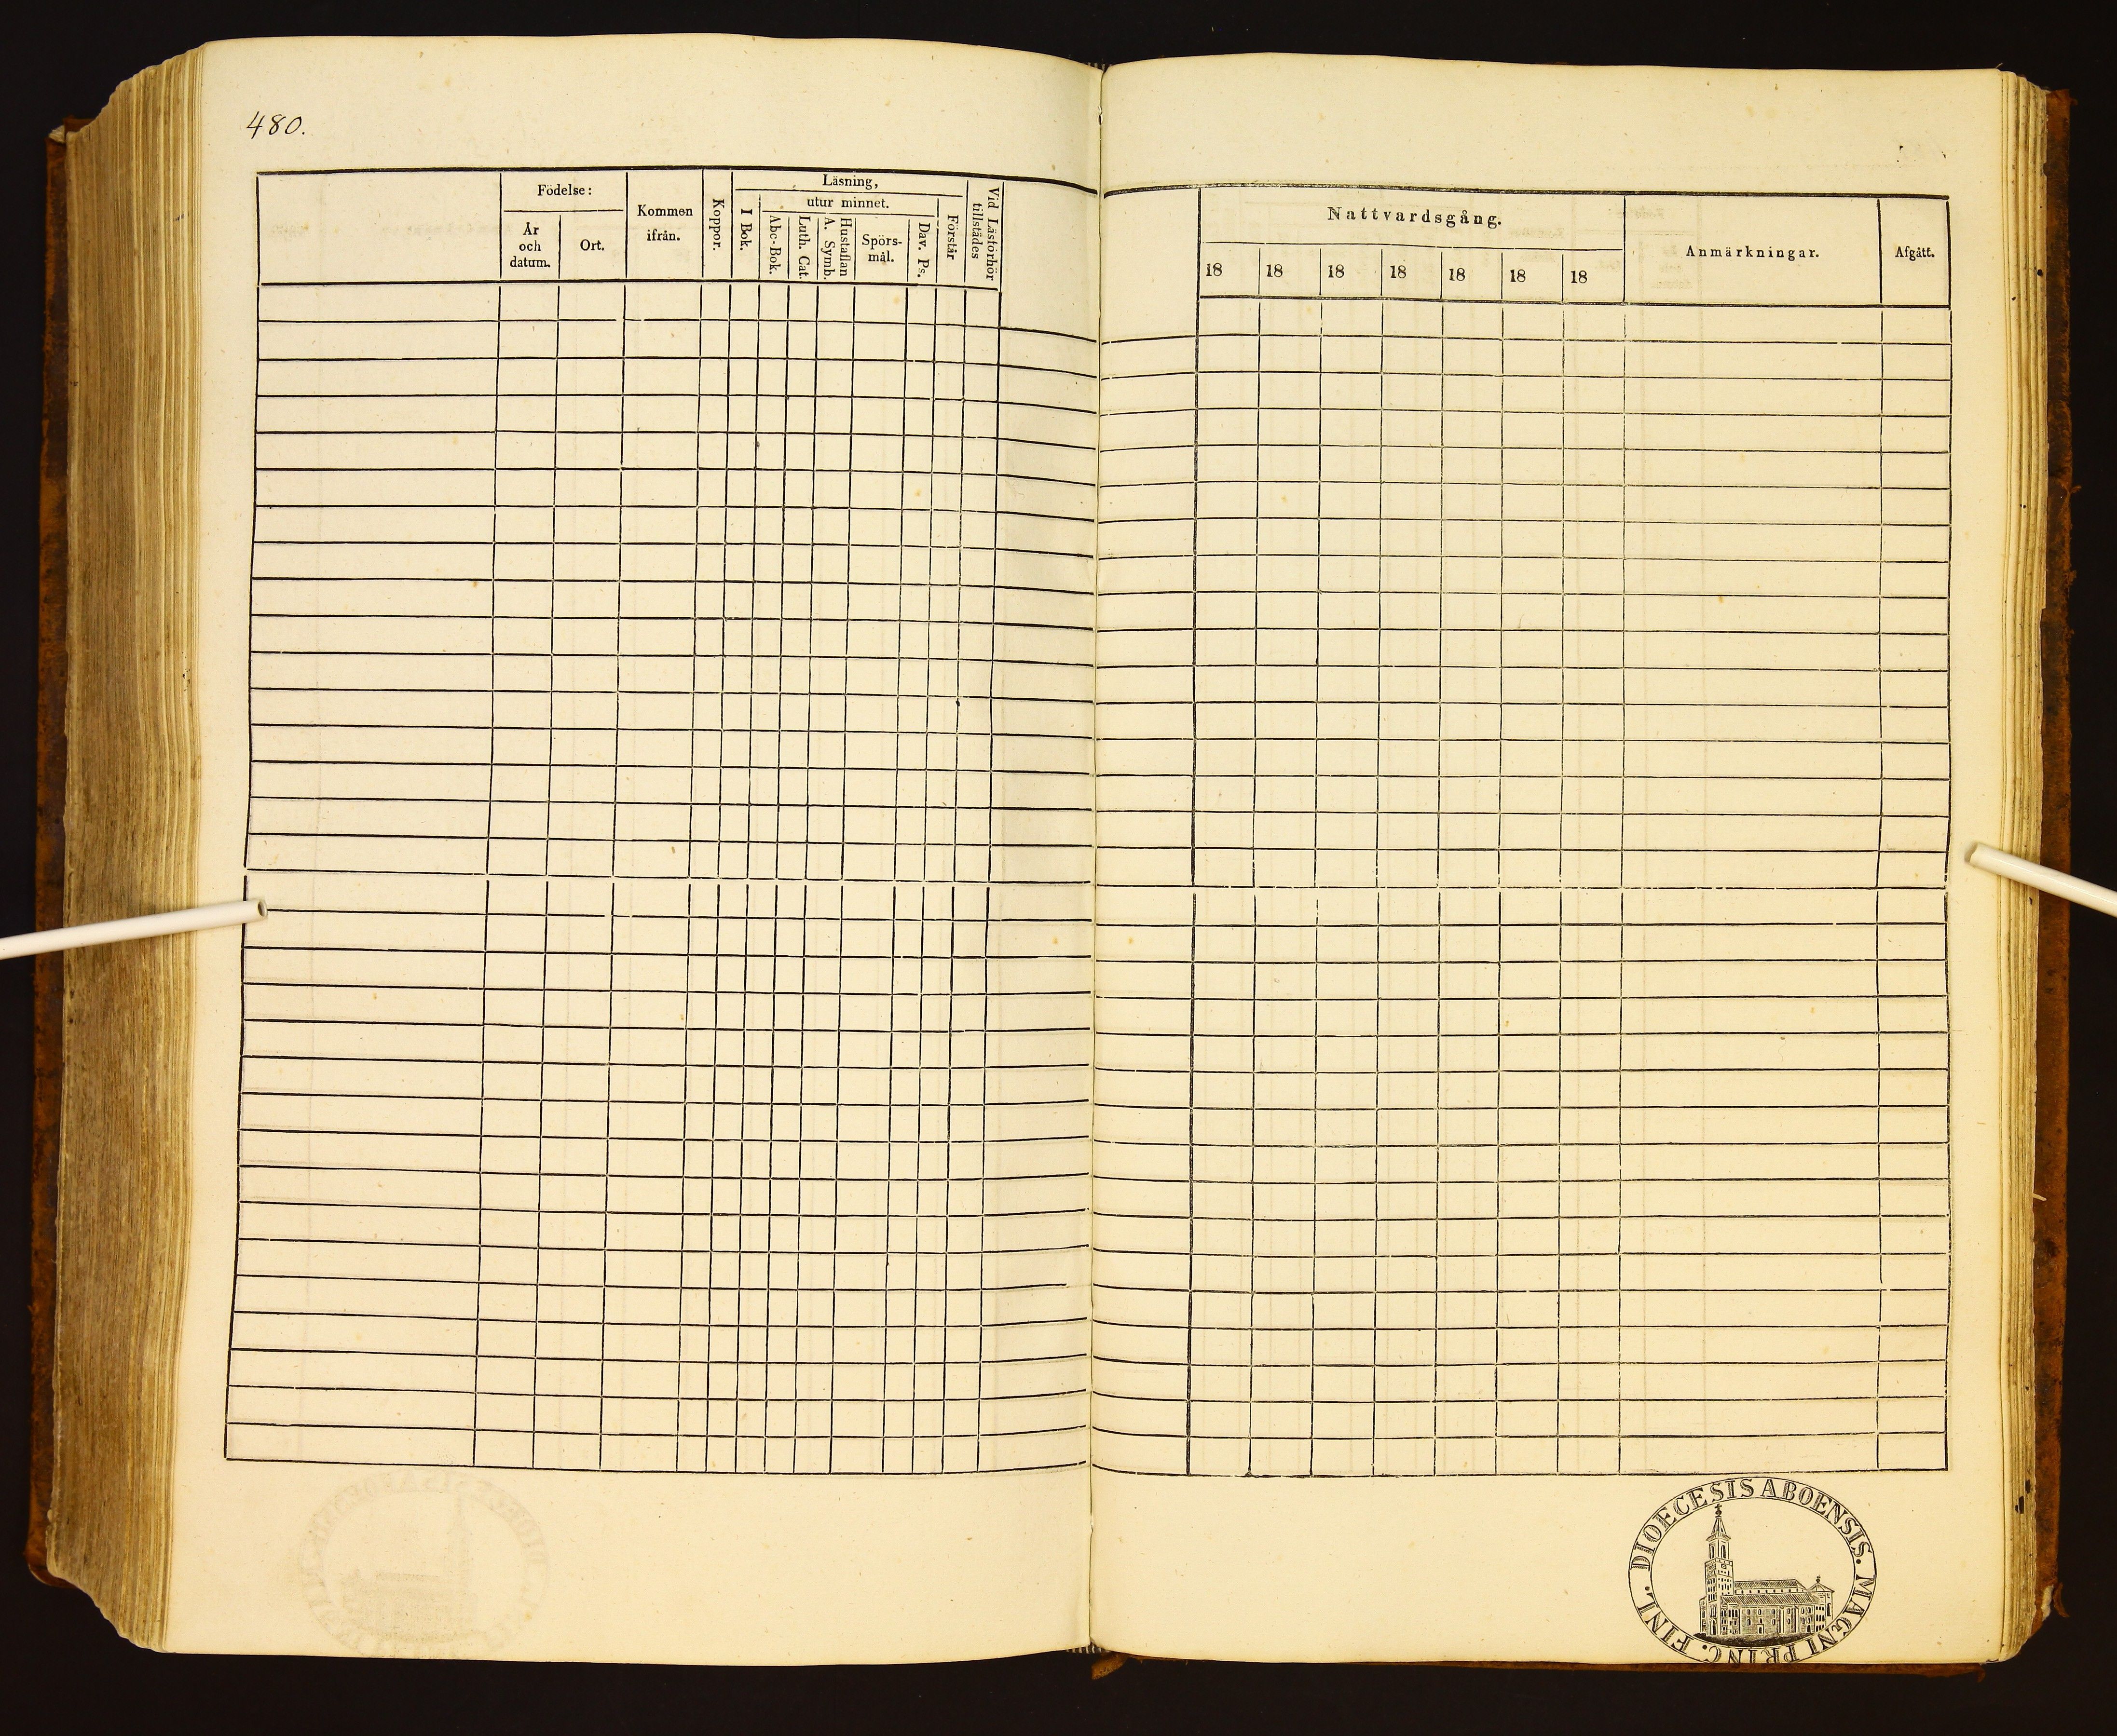 480.
Födelse:
År
och
datum.
Ort.
Kommen
ifrån.
Koppor.
Läsning,
I Bok.
utur minnet.
Abc-Bok.
Luth. Cat.
A. Symb.
Hustaflan
Spörs-
mål.
Dav. Ps.
Förstår
Vid Läsförhör
tillstädes
Nattvardsgång.
18 18 18 18 18 18 18
Anmärkningar.
Afgått.
DIOECESIS ABOENSIS. MAGNI PRINC. FINL.